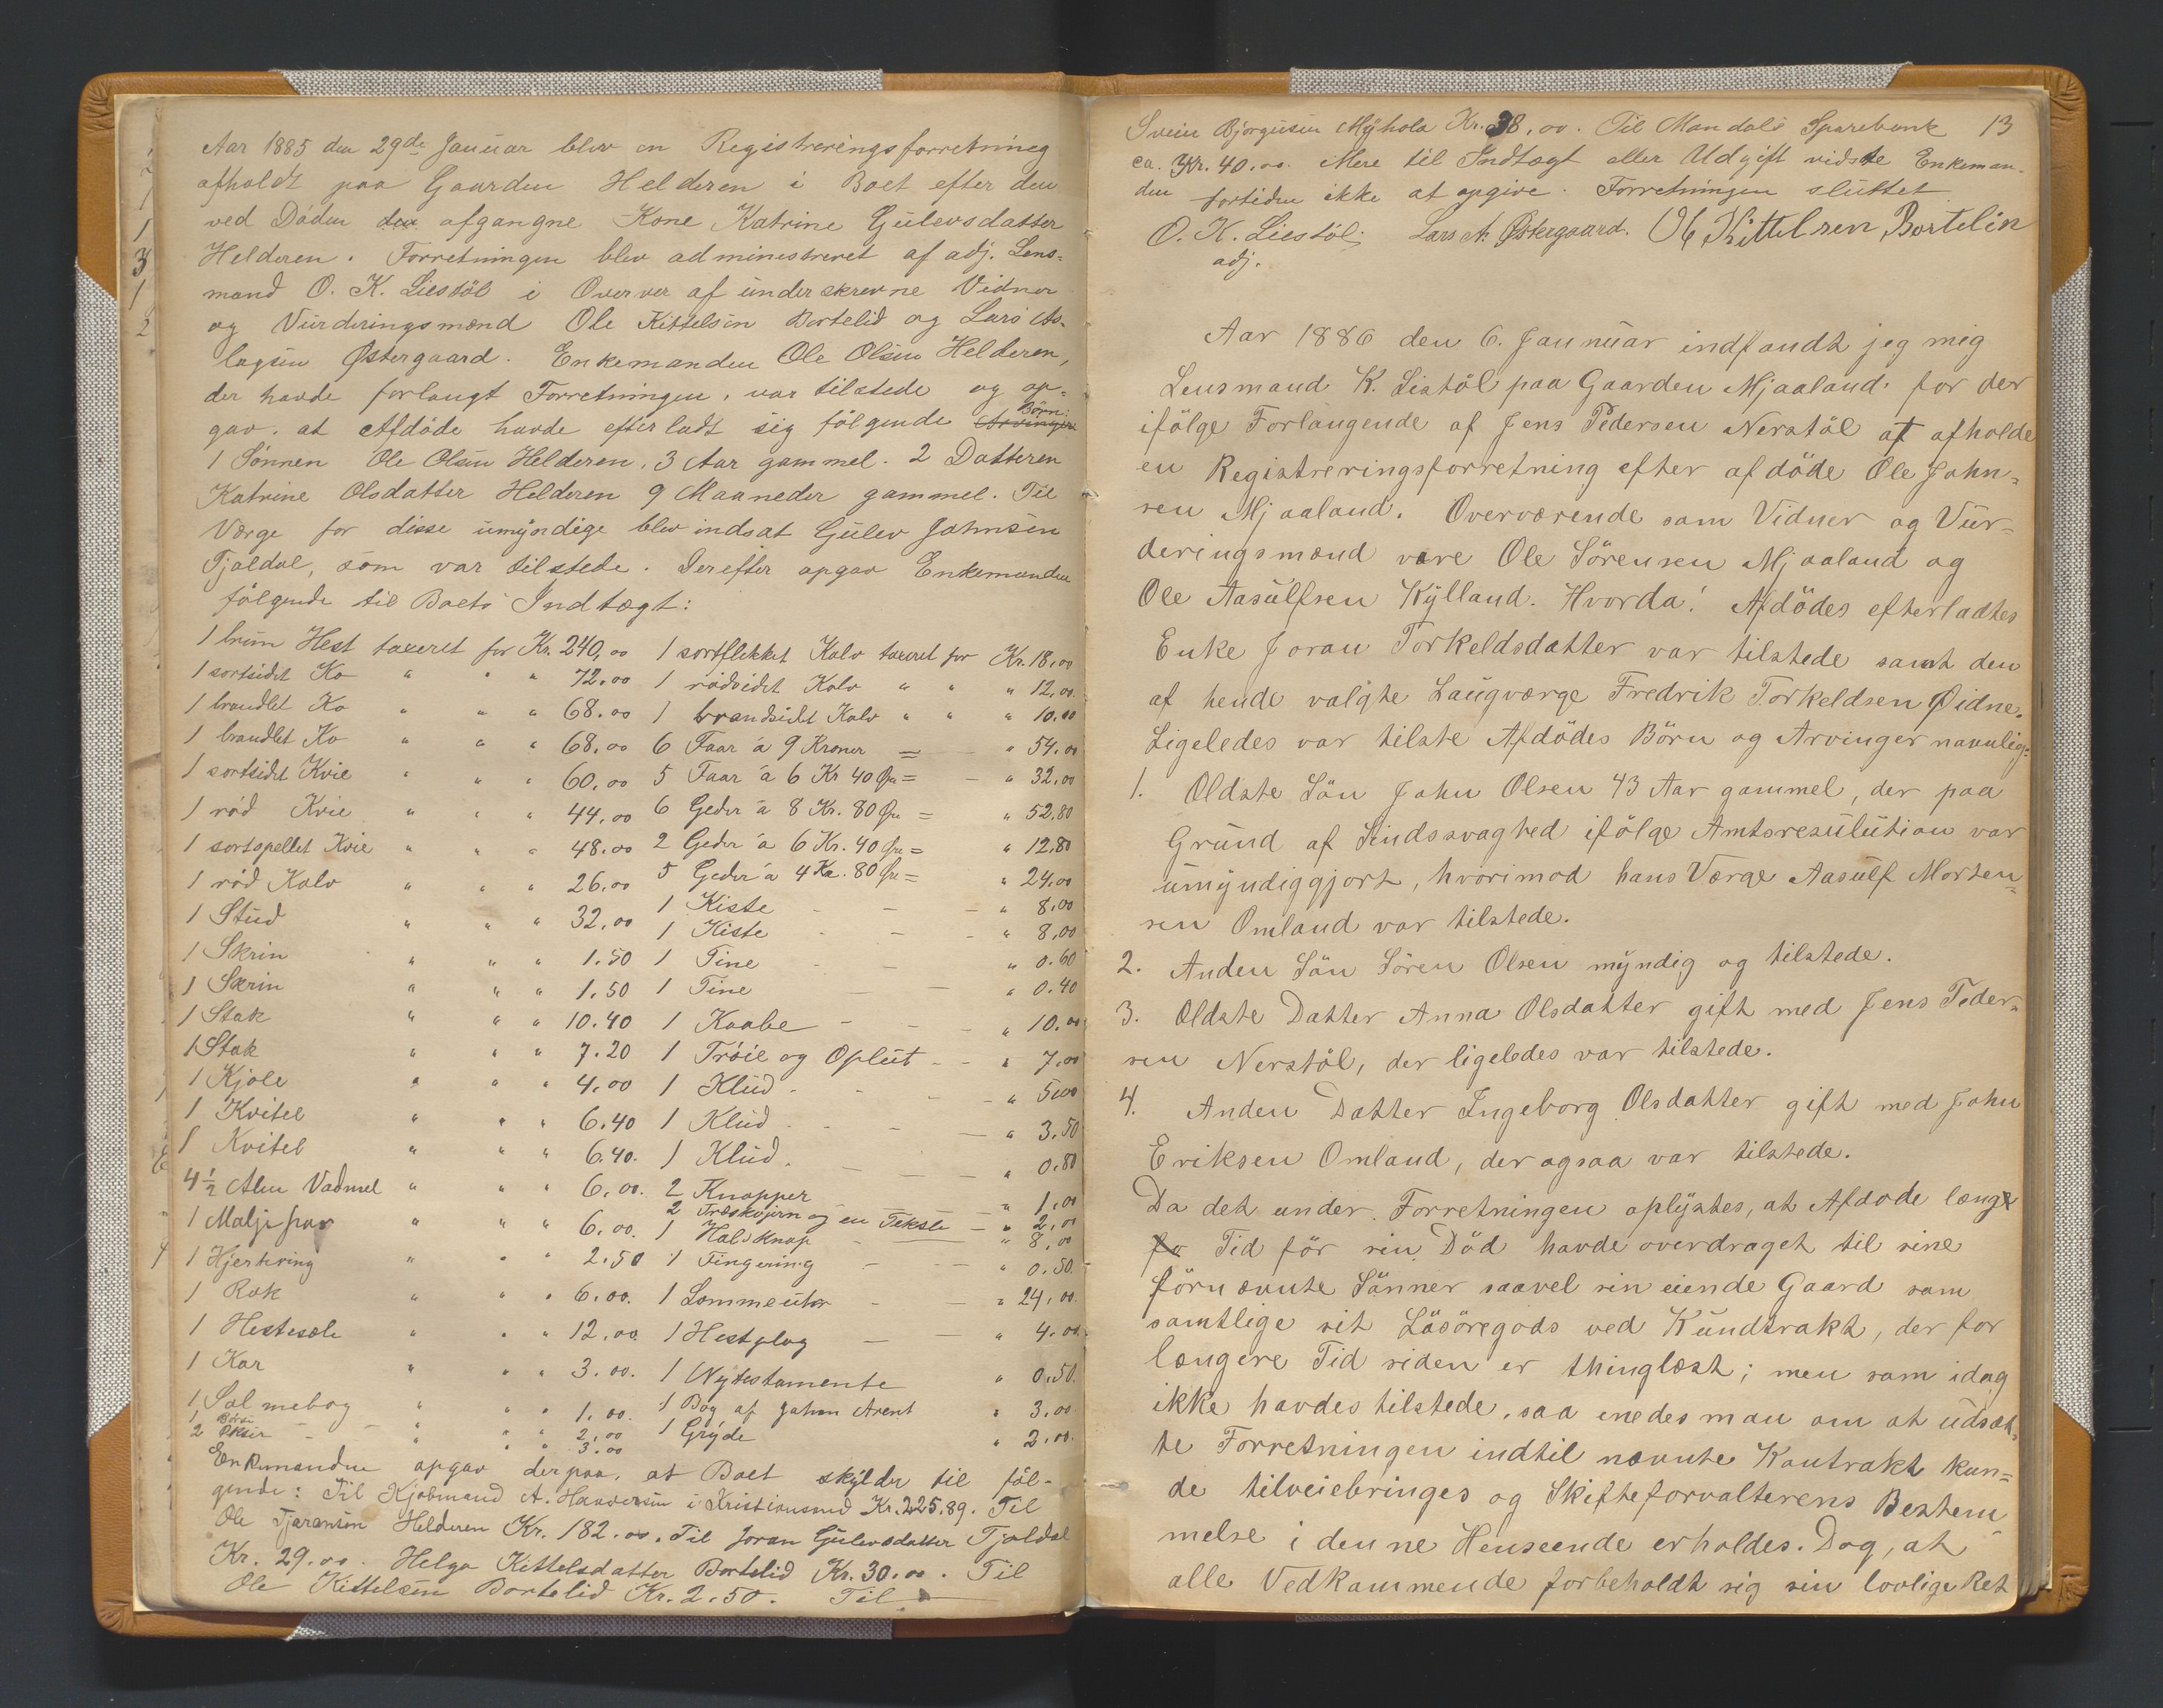 Aar 1885 den 29de Januar blev en Registreringsforretning
afholdt paa Gaarden Helderen i Boet efter den
ved Döden den afgangne Kone Katrine Gulevsdatter
Helderen. Forretningen blev administreret af adj. Lens-
mand O. K. Liestöl i Overver af underskrevne Vidner
og Vurderingsmænd Ole Kittelsen Bortelid og Lars As-
lagsen Østergaard. Enkemanden Ole Olsen Helderen,
der havde forlangt Forretningen, var tilstede og op-
gav, at Afdöde havde efterladt sig fölgende Arvinger Börn:
1 Sönnen Ole Olsen Helderen, 3 Aar gammel. 2 Datteren
Katrine Olsdatter Helderen 9 Maaneder gammel. Til
Værge for disse umyndige blev indsat Gulev Johnsen
Tjaldal, som var tilstede. Derefter opgav Enkemanden
fölgende til Boets Indtægt:
1 brun Hest taxeret for Kr. 240,00 1 sortflekket Kalv taxeret for Kr. 18,00
1 sortsidet Ko " " " 72.00 1 rödsidet Kalv " " " 12,00.
1 brandlet Ko " " " 68.00 1 brandsidet Kalv " " " 10.00
1 brandlet Ko " " " 68,00 6 Faar á 9 Kroner = " 54.00
1 sortsidet Kvie " " " 60,00 5 Faar á 6 Kr 40 Øre = - " 32,00
1 röd Kvie " " " 44,00 6 Geder á 8 Kr. 80 Øre = " 52,80
1 sortspellet Kvie " " " 48.00 2 Geder á 6 Kr. 40 Øre = " 12,80
1 röd Kalv " " " 26,00 5 Geder á 4 Kr. 80 Øre = " 24,00
1 Stud " " " 32,00 1 Kiste - - - " 8,00
1 Kiste - - - " 8,00
1 Skrin " " " 1.50 1 Tine - - " 0.60
1 Skrin " " " 1.50 1 Tine - - " 0.40
1 Stak " " " 10.40 1 Kaabe - - - " 10.00
1 Stak " " " 7.20 1 Tröie og Oplut - - " 7,00
1 Kjole " " " 4.00 1 Klud - - - " 5,00
1 Kvitel " " " 6.40 1 Klud - - - " 3.50
1 Kvitel " " " 6.40. 1 Klud. - - - " 0.80
4½ Alen Vadmel " " " 6,00. 2 Knapper - " 1,00
2 Træskejern og en Teksle - " 2,00
1 Maljepar " " " 6.00. 1 Halsknap - " 8,00
1 Hjertering " " " 2.50 1 Fingering - - - " 0.50.
1 Rok " " " 6.00. 1 Lommeuhr - - " 24,00.
1 Hestesele " " " 12.00 1 Hestplog - - " 4.00
1 Kar " " " 3.00. 1 Nytestamente " 0.50.
1 Salmebog " " " 1.00. 1 Bog af Johan Arent " 3,00
1 Börse - - " " " 2,00 1 Gryde " 2.00.
2 Økser " " " 3.00
Enkemanden opgav derpaa, at Boet skylder til föl-
gende: Til Kjöbmand A. Haaversen i Kristiansand Kr. 225.89. Til
Ole Tjaransen Helderen Kr. 182.00. Til Joran Gulevsdatter Tjaldal
Kr. 29.00. Helga Kittelsdatter Bortelid Kr. 30.00. Til
Ole Kittelsen Bortelid Kr. 2.50. Til
Svein Bjorgusen Myhola Kr. 38,00. Til Mandals Sparebank 13
ca. Kr. 40.00. Mere til Indtægt eller Udgift vidste Enkeman-
den fortiden ikke at opgive. Forretningen sluttet.
O. K. Liestöl. Lars A. Østergaard. Ole Kittelsen Bortelin
adj.
Aar 1886 den 6. Januuar indfandt jeg mig
Lensmand K. Listöl paa Gaarden Mjaaland for der
ifölge Forlangende af Jens Pedersen Nerstöl at afholde
en Registreringsforretning efter afdöde Ole John-
sen Mjaaland. Overværende som Vidner og Vur-
deringsmænd vare Ole Sörensen Mjaaland og
Ole Aasulfsen Kylland. Hvorda! Afdödes efterladtes
Enke Joran Torkeldsdatter var tilstede samt den
af hende valgte Laugværge Fredrik Torkeldsen Øidne.
Ligeledes var tilste Afdödes Börn og Arvinger navnlig:
1. Oldste Sön John Olsen 43 Aar gammel, der paa
Grund af Sindssvaghed ifölge Amtsresulution var
umyndiggjort, hvorimod hans Værge Aasulf Morten-
sen Omland var tilstede.
2. Anden Sön Sören Olsen myndig og tilstede.
3. Oldste Datter Anna Olsdatter gift med Jens Peder-
sen Nerstöl, der ligeledes var tilstede.
4. Anden Datter Ingeborg Olsdatter gift med John
Eriksen Omland, der ogsaa var tilstede.
Da det under Forretningen oplystes, at Afdode længe
fo Tid för sin Död havde overdraget til sine
förnævnte Sönner saavel sin eiende Gaard som
samtlige sit Lösöregods ved Kundtrakt, der for
længere Tid siden er thinglæst; men som idag
ikke havdes tilstede, saa enedes man om at udsæt-
te Forretningen indtil nævnte Kontrakt kun-
de tilveiebringes og Skifteforvalterens Bestem
melse i denne Henseende erholdes. Dog, at
alle Vedkammende forbeholdt sig sin lovlige Ret